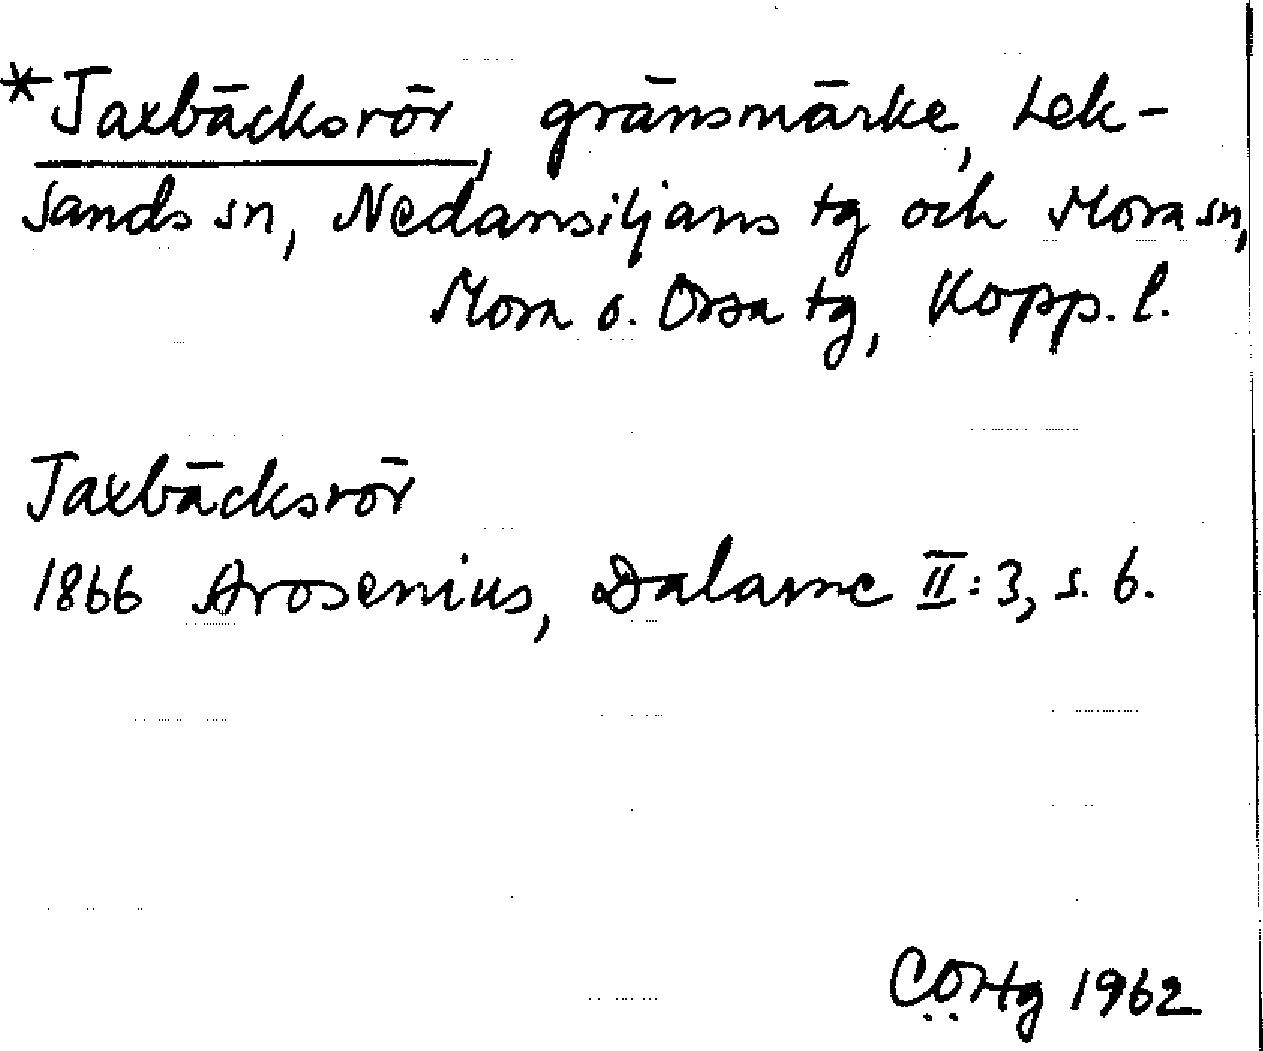 *Jaxbäcksrör, gränsmärke, Lek-
sands sn, Nedansiljans tg och Mora sn,
Mora o. Orsa tg, Kopp. l.
Jaxbäcksrör
1866 Arosenius, Dalarne II:3, s. 6.
1962